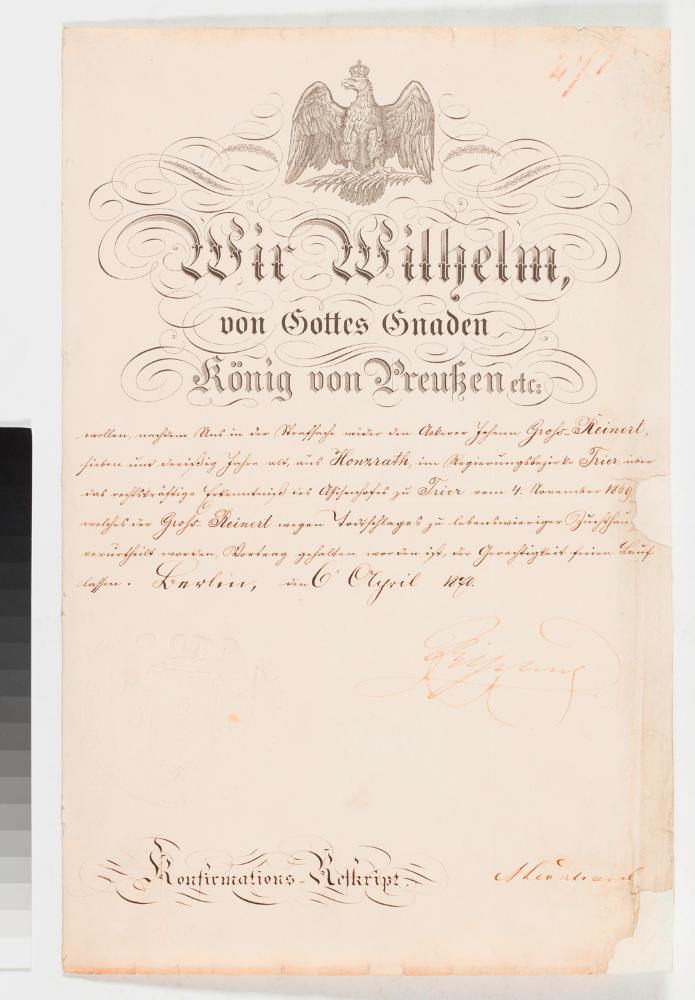 Wir Wilhelm,
von Gottes Gnaden
König von Preußen etc:
wollen, nachdem Uns in der Strafsache wider den Ackerer Johann Groß-Reinert,
sieben und dreißig Jahre alt, aus Honzrath, im Regierungsbezirke Trier, über
das rechtskräftige Erkenntniß des Assisenhofes zu Trier vom 4. November 1869,
welches der Groß-Reinert wegen Todtschlages zu lebenswieriger Zuchthaus
verurtheilt worden, Vortrag gehalten worden ist, der Gerechtigkeit freien Lauf
lassen. Berlin, den 6 April 1870.
Konfirmations-Reskript.